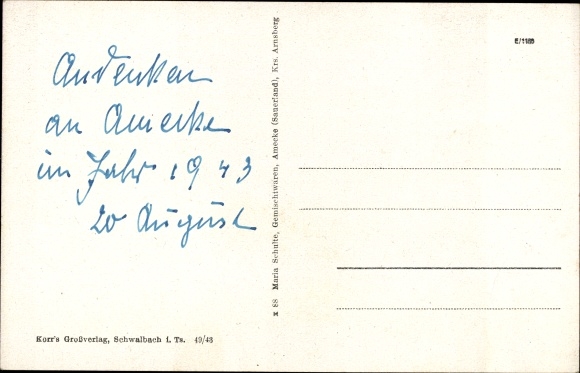 Andenken
an Amecke
im Jahr 1943
20 August
Korr's Großverlag, Schwalbach i. Ts. 49/43
x 88 Maria Schulte, Gemischtwaren, Amecke (Sauerland), Krs. Arnsberg
E/1185